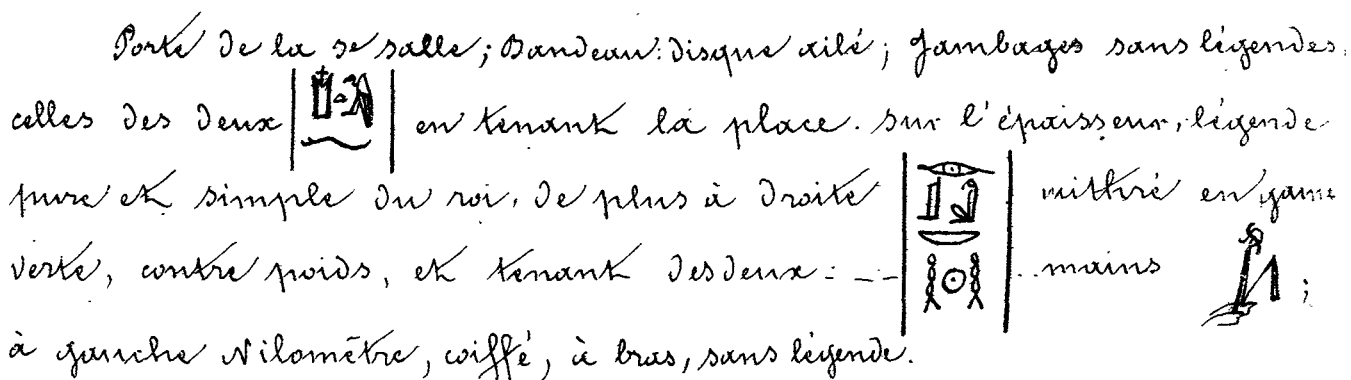 Porte de la 2e salle; Bandeau: disque ailé; Jambages sans légendes,
celles des deux en tenant la place. Sur l'épaisseur, légende
pure et simple du roi, de plus à droite mithré en gaine
verte, contre poids, et tenant des deux mains ;
à gauche Nilomètre, coiffé, à bras, sans légende.